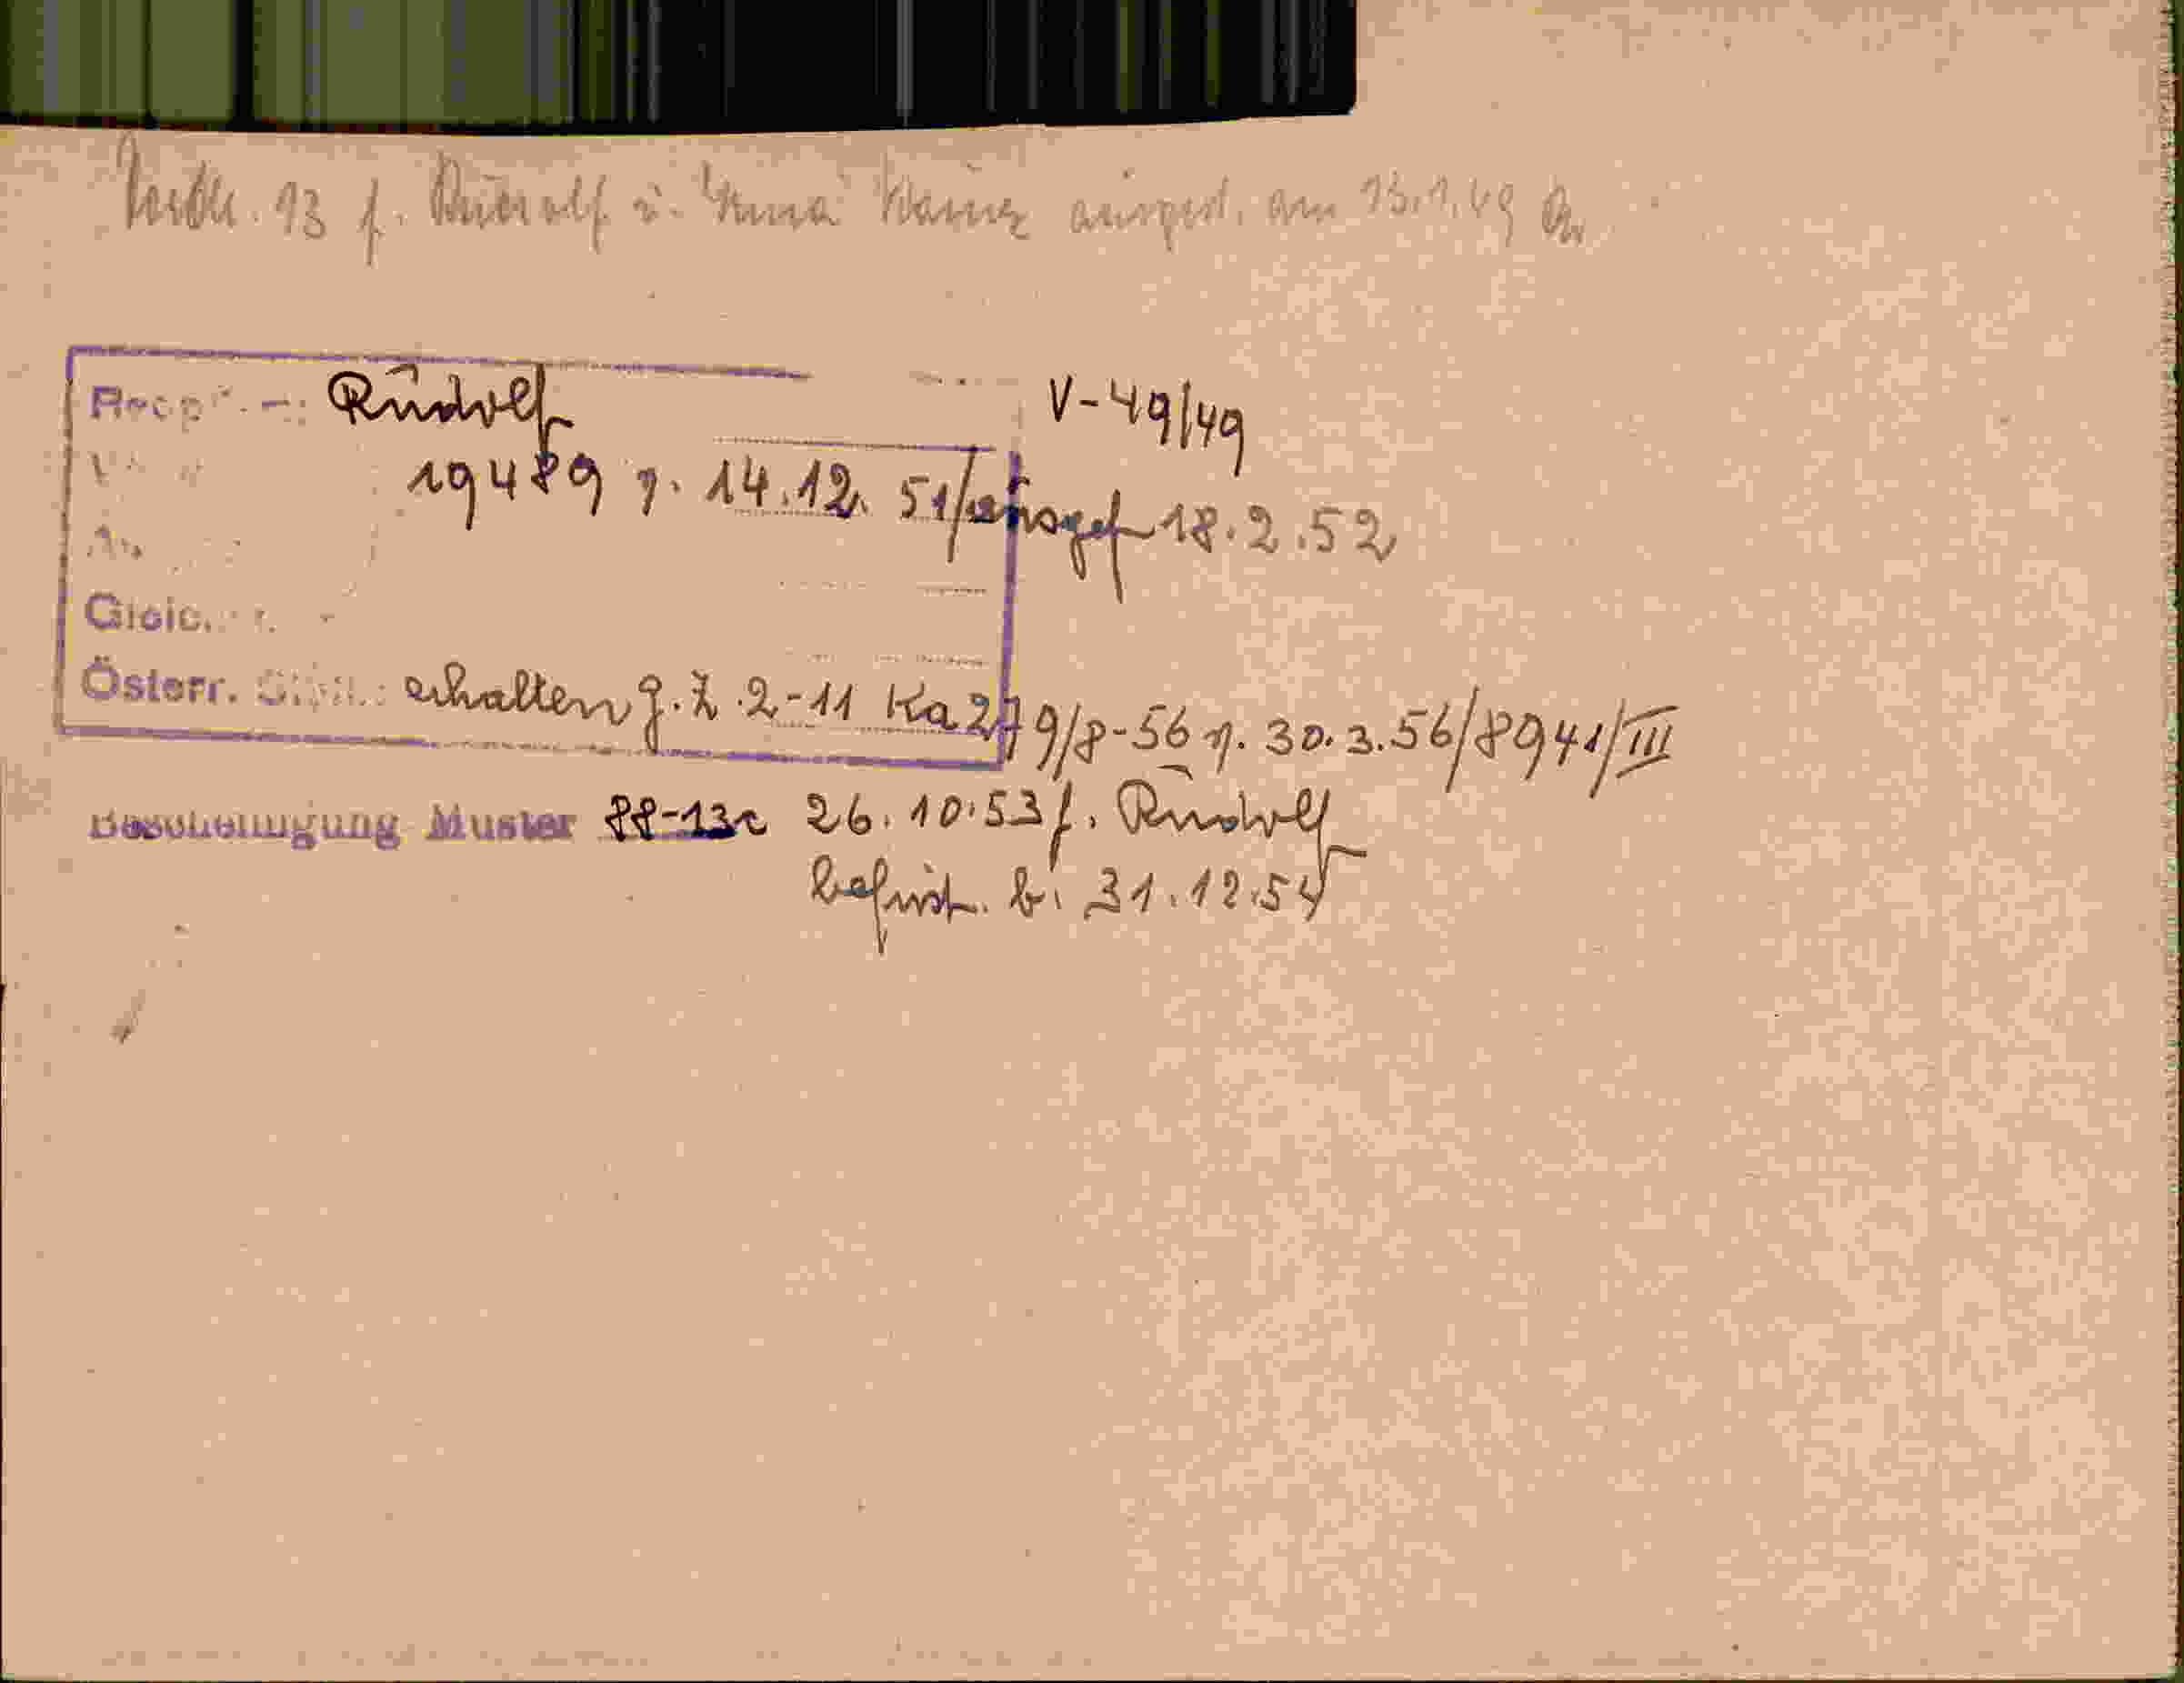 13 f. Rudolf u. Irma ausgest. am 13.1.49
Rudolf V-49/49
19489 v. 14.12.51/ausgef 18.2.52
Österr. erhalten g. Z. 2-11 Ka 279/8-56 v. 30.3.56/8941/III
Bescheinigung Muster 88-13c 26.10.53 f. Rudolf
befrist. b. 31.12.54